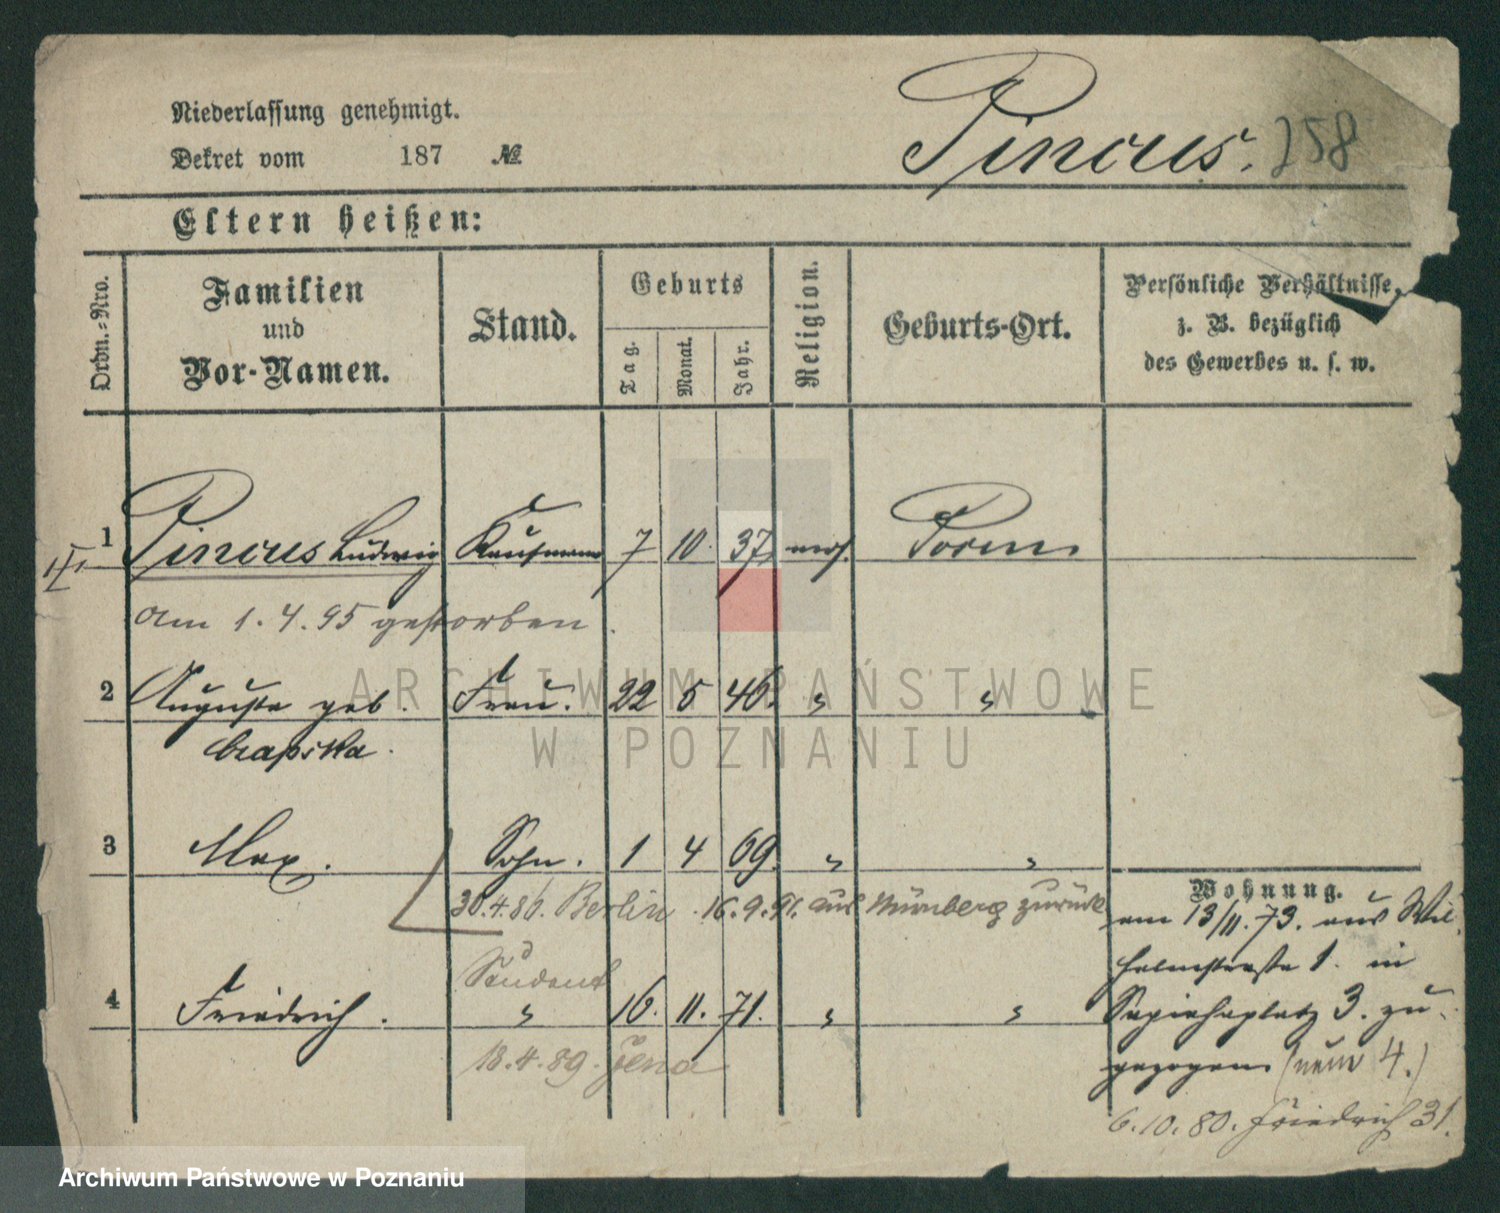 Niederlassung genehmigt.
Dekret vom 187 №
Pincus. 258
Eltern heißen:
Ordn.-Nro.
Familien
und
Vor-Namen.
Stand.
Geburts
Tag.
Monat.
Jahr.
Religion.
Geburts-Ort.
Persönliche Verhältnisse,
z. B. bezüglich
des Gewerbes u. s. w.
1 Pincus Ludwig Kaufmann 7 10. 37. mos. Posen
am 1.4.95 gestorben.
2 Auguste geb. Frau. 22 5 46. " "
Czapska.
3 Max. Sohn. 1 4 69. " "
30.4.86. Berlin. 16.9.91. aus Nürnberg zurück
Student
4 Friedrich. " 16. 11. 71. " "
18.4.89. Jena
Wohnung.
am 13/11.73. aus Wil-
helmstraße 1. in
Sapiehaplatz 3. zu-
gezogen (neue 4.)
6.10.80. Friedrich 31.
ARCHIWUM PAŃSTWOWE
W POZNANIU
Archiwum Państwowe w Poznaniu